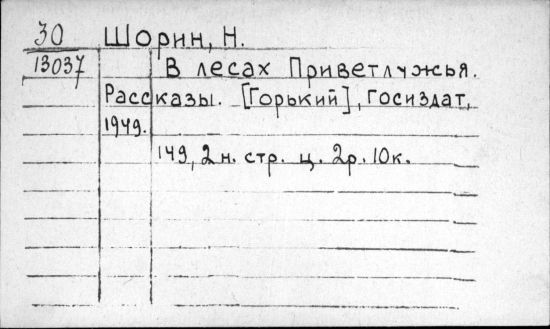 30 Шорин, Н.
13037 В лесах Приветлужья.
Рассказы. [Горький], Госиздат,
1949.
149, 2 н. стр. ц. 2р. 10к.